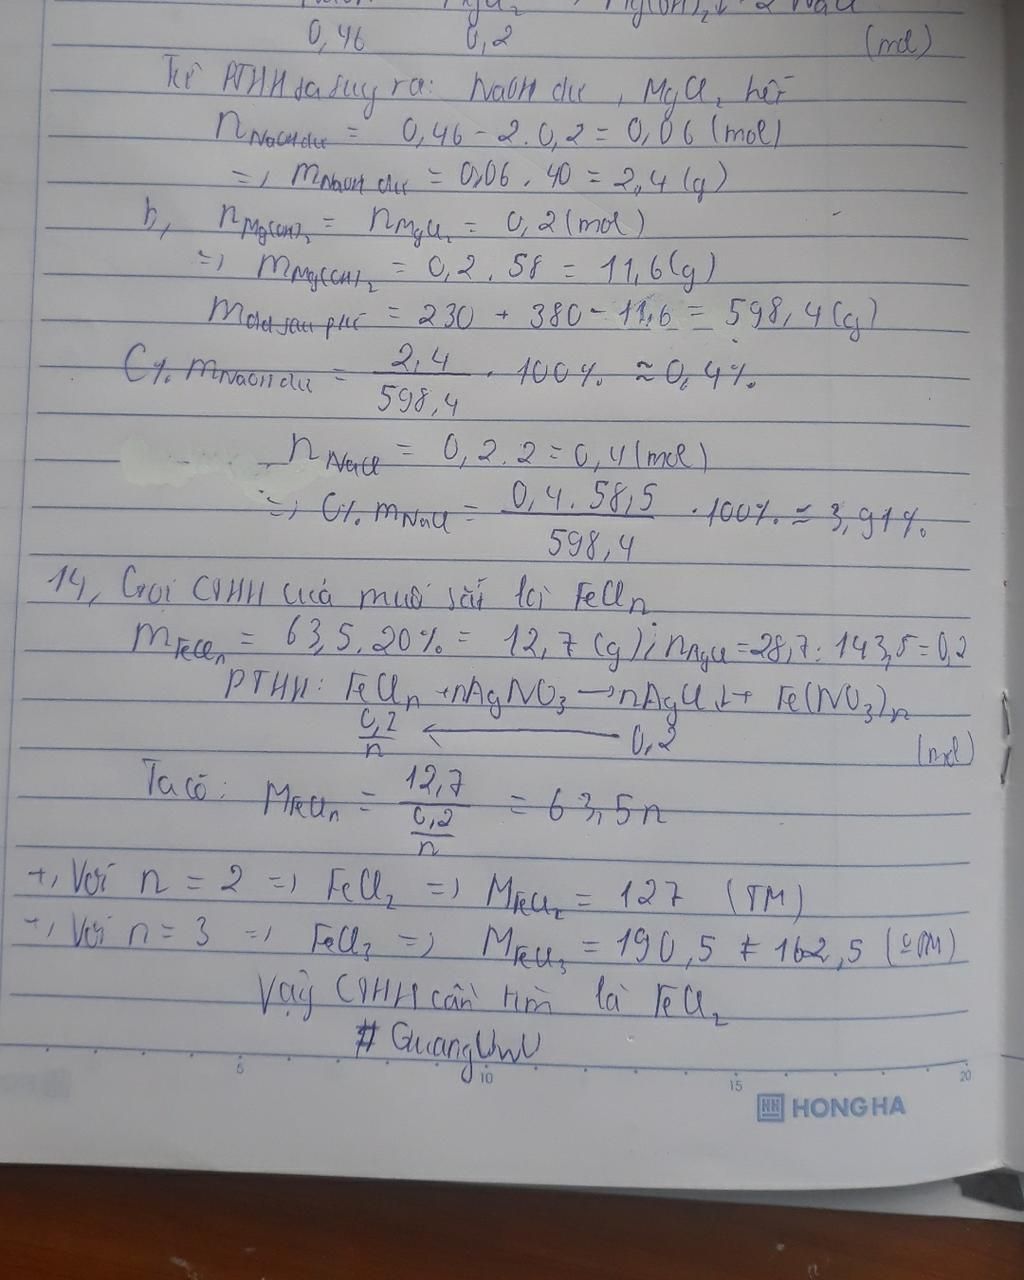 MgCl2 Mg(OH)2↓ 2 NaCl
0,46 0,2 (mol)
Từ PTHH ta suy ra: NaOH dư, MgCl2 hết
nNaOH dư = 0,46 - 2.0,2 = 0,06 (mol)
=> mNaOH dư = 0,06 . 40 = 2,4 (g)
b, nMg(OH)2 = nMgCl2 = 0,2 (mol)
=> mMg(OH)2 = 0,2 . 58 = 11,6 (g)
mdd sau pứ = 230 + 380 - 11,6 = 598,4 (g)
C% mNaOH dư = 2,4/598,4 . 100% ≈ 0,4%
nNaCl = 0,2 . 2 = 0,4 (mol)
=> C% mNaCl = 0,4 . 58,5/598,4 . 100% ≈ 3,91%
14, Gọi CTHH của muối sắt là FeCln
mFeCln = 63,5 . 20% = 12,7 (g); nAgCl = 28,7 : 143,5 = 0,2
PTHH: FeCln + nAgNO3 → nAgCl↓ + Fe(NO3)n
0,2/n ← 0,2 (mol)
Ta có: MFeCln = 12,7/(0,2/n) = 63,5n
+, Với n = 2 => FeCl2 => MFeCl2 = 127 (TM)
+, Với n = 3 => FeCl3 => MFeCl3 = 190,5 ≠ 162,5
Vậy CTHH cần tìm là FeCl2
# GuangUwU
5 10 15 20
HH HONG HA